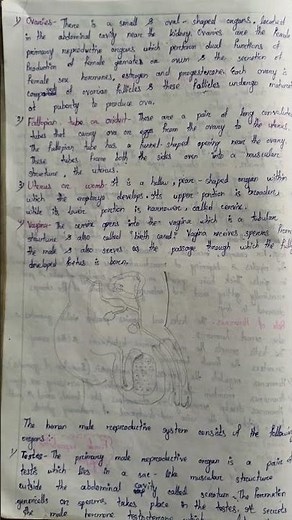 1) Ovaries- There is a small & oval-shaped organs, located
in the abdominal cavity near the kidney. Ovaries are the female
primary reproductive organs which perform dual functions of
production of female gametes or ovum & the secretion of
female sex hormones, estrogen and progesterone. Each ovary is
composed of ovarian follicles & these follicles undergo maturation
at puberty to produce ova.
2) Fallopian tube or oviduct- There are a pair of long convoluted
tubes that carry ova or eggs from the ovary to the uterus.
The fallopian tube has a funnel-shaped opening near the ovary.
These tubes from both the sides open into a muscular
structure, the uterus.
3) Uterus or womb- It is a hollow, pear-shaped organ within
which the embryo develops. Its upper portion is broader,
while its lower portion is narrower, called cervix.
4) Vagina- The cervix opens into the vagina which is a tubular
structure & also called birth canal. Vagina receives sperms from
the male & also serves as the passage through which the fully
developed fetus is born.
The human male reproductive system consists of the following
organs:-
1) Testes- The primary male reproductive organ is a pair of
testis which lies in a sac-like muscular structure
outside the abdominal cavity called scrotum. The formation
germcells or sperms, takes place in the testes. It secrets
the male hormone testosterone which